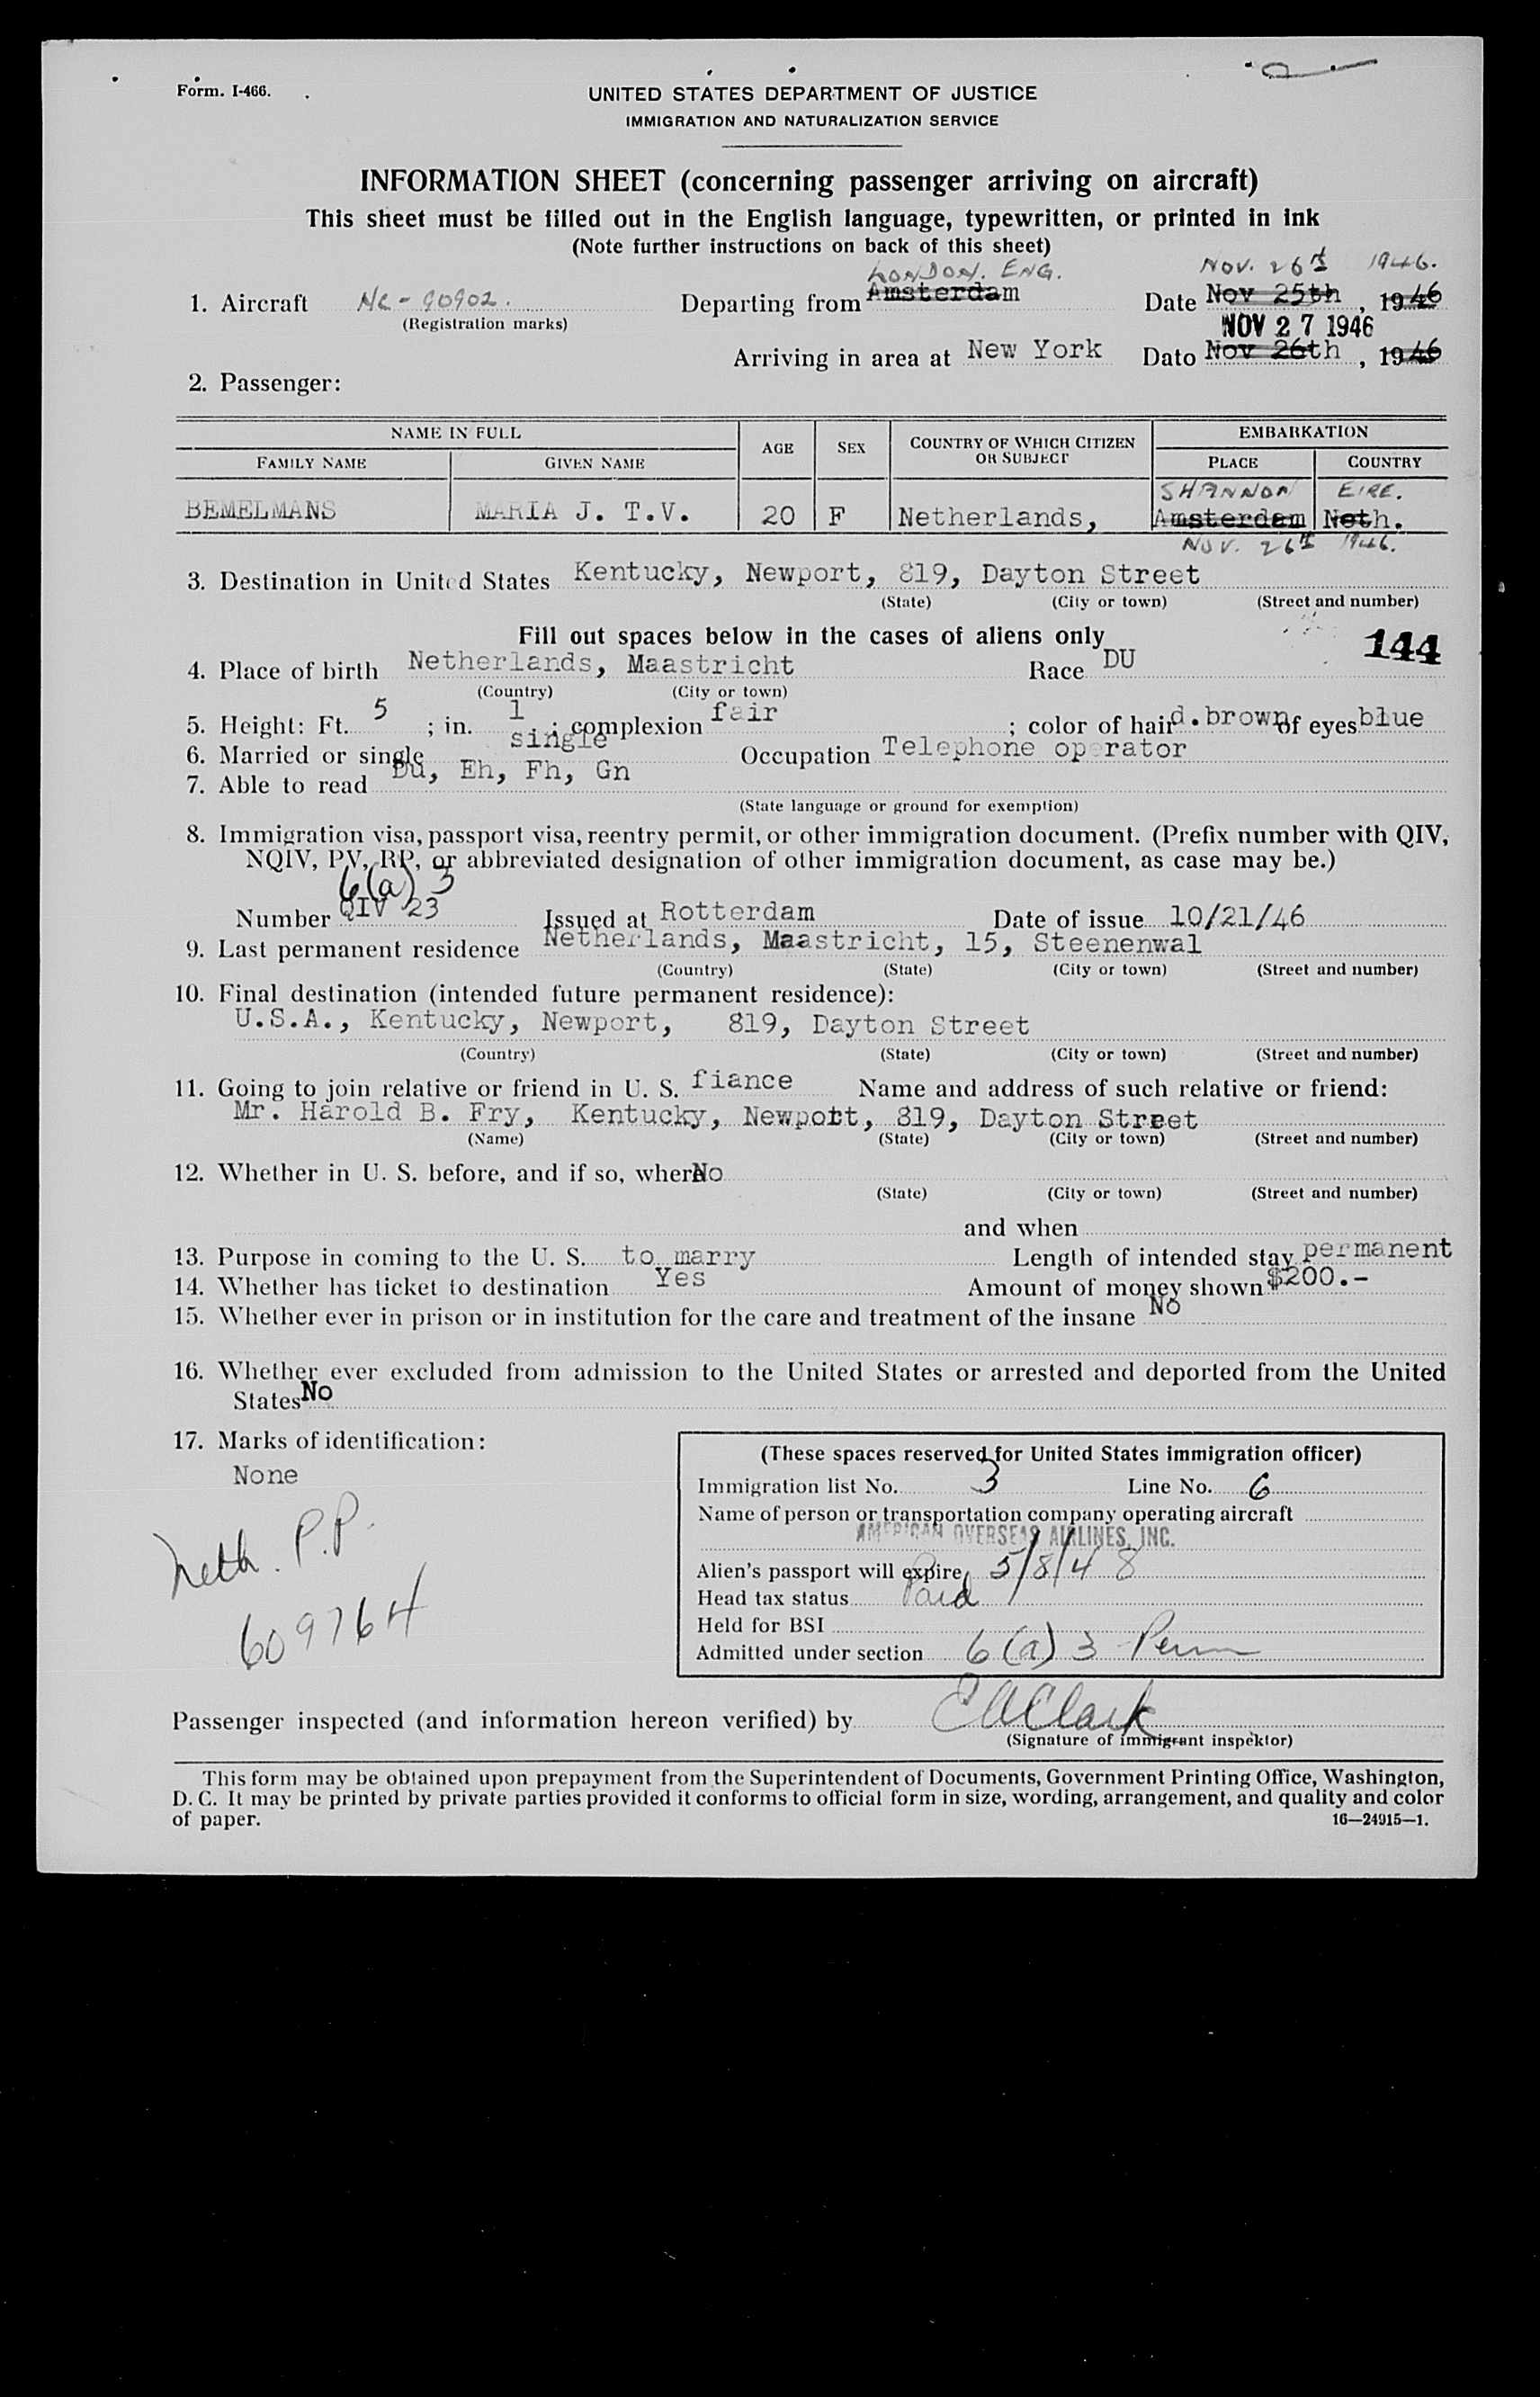 Form. I-466.
UNITED STATES DEPARTMENT OF JUSTICE
IMMIGRATION AND NATURALIZATION SERVICE
INFORMATION SHEET (concerning passenger arriving on aircraft)
This sheet must be filled out in the English language, typewritten, or printed in ink
(Note further instructions on back of this sheet)
LONDON. ENG. NOV. 26th 1946.
1. Aircraft NC-90902. Departing from Amsterdam Date Nov 25th, 1946
(Registration marks) NOV 27 1946
Arriving in area at New York Dato Nov 26th, 1946
2. Passenger:
NAME IN FULL AGE SEX COUNTRY OF WHICH CITIZEN OR SUBJECT EMBARKATION
FAMILY NAME GIVEN NAME PLACE COUNTRY
SHANNON EIRE.
BEMELMANS MARIA J. T.V. 20 F Netherlands, Amsterdam Neth.
NOV. 26th 1946.
3. Destination in United States Kentucky, Newport, 819, Dayton Street
(State) (City or town) (Street and number)
Fill out spaces below in the cases of aliens only
144
4. Place of birth Netherlands, Maastricht Race DU
(Country) (City or town)
5. Height: Ft. 5 ; in. 1 ; complexion fair ; color of hair d.brown of eyes blue
6. Married or single single Occupation Telephone operator
7. Able to read Du, Eh, Fh, Gn
(State language or ground for exemption)
8. Immigration visa, passport visa, reentry permit, or other immigration document. (Prefix number with QIV,
NQIV, PV, RP, or abbreviated designation of other immigration document, as case may be.)
6(a) 3
Number QIV 23 Issued at Rotterdam Date of issue 10/21/46
9. Last permanent residence Netherlands, Maastricht, 15, Steenenwal
(Country) (State) (City or town) (Street and number)
10. Final destination (intended future permanent residence):
U.S.A., Kentucky, Newport, 819, Dayton Street
(Country) (State) (City or town) (Street and number)
11. Going to join relative or friend in U. S. fiance Name and address of such relative or friend:
Mr. Harold B. Fry, Kentucky, Newpott, 819, Dayton Street
(Name) (State) (City or town) (Street and number)
12. Whether in U. S. before, and if so, where No
(State) (City or town) (Street and number)
and when
13. Purpose in coming to the U. S. to marry Length of intended stay permanent
14. Whether has ticket to destination Yes Amount of money shown $200.-
15. Whether ever in prison or in institution for the care and treatment of the insane No
16. Whether ever excluded from admission to the United States or arrested and deported from the United
States No
17. Marks of identification:
None
Neth. P.P.
609764
(These spaces reserved for United States immigration officer)
Immigration list No. 3 Line No. 6
Name of person or transportation company operating aircraft
AMERICAN OVERSEAS AIRLINES, INC.
Alien's passport will expire 5/8/48
Head tax status Paid
Held for BSI
Admitted under section 6(a) 3 Perm
Passenger inspected (and information hereon verified) by E A Clark
(Signature of immigrant inspektor)
This form may be obtained upon prepayment from the Superintendent of Documents, Government Printing Office, Washington,
D. C. It may be printed by private parties provided it conforms to official form in size, wording, arrangement, and quality and color
of paper. 16—24915—1.